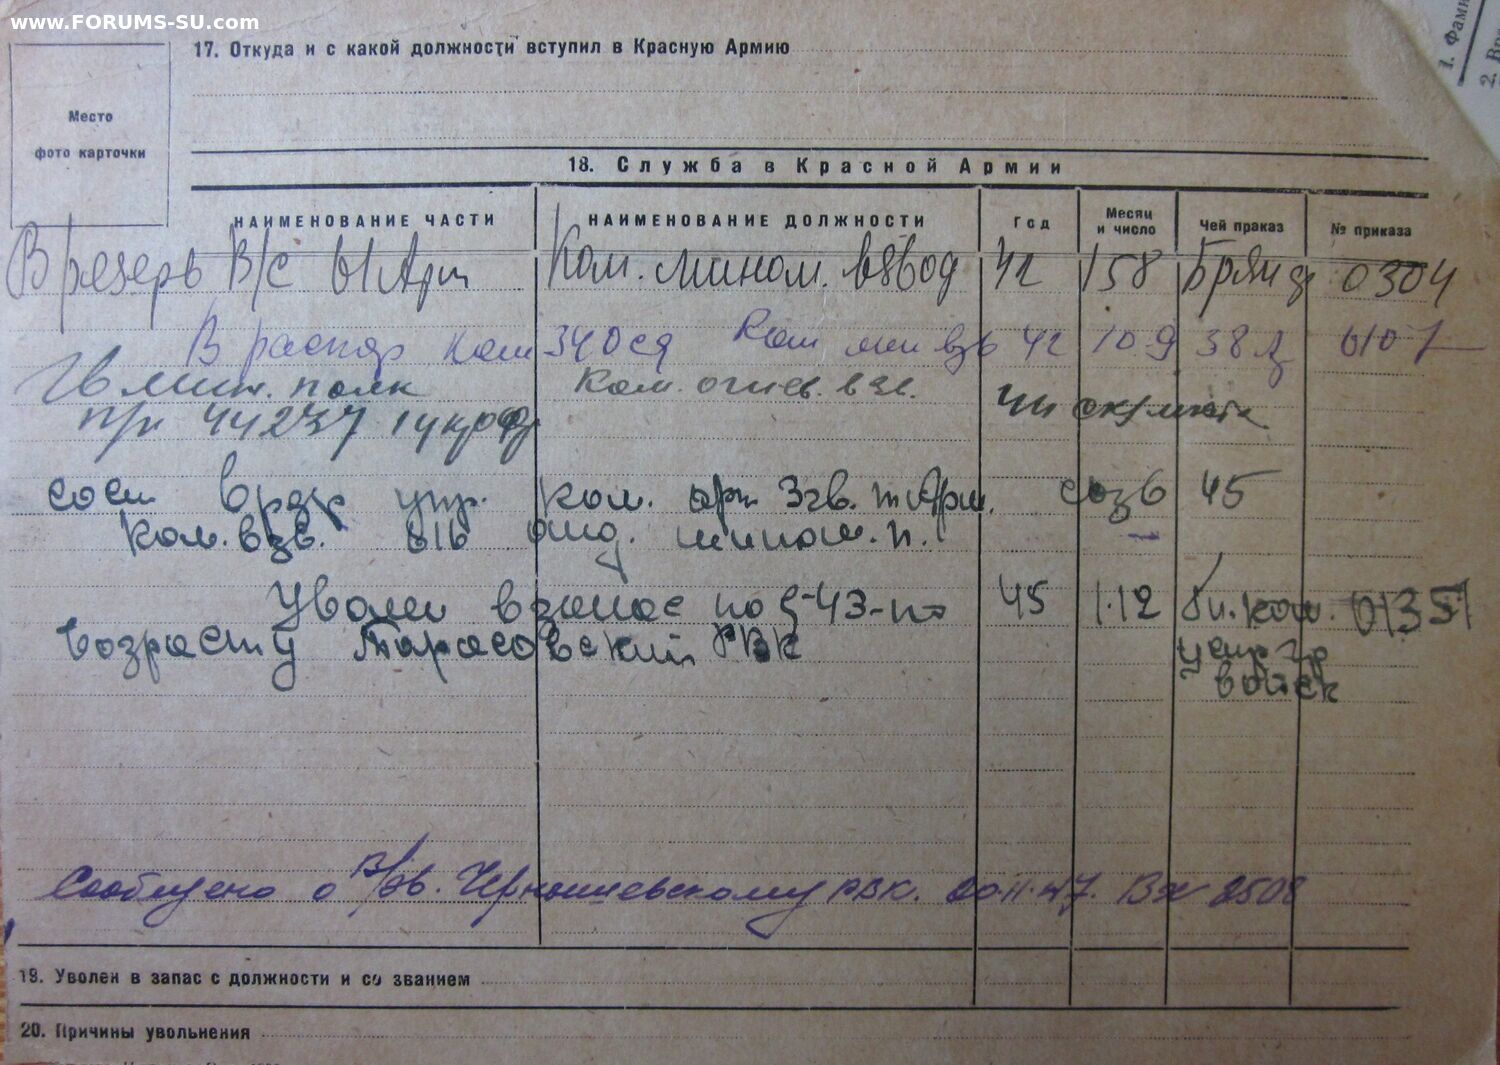 www.FORUMS-SU.com
1. Фами
2. В
17. Откуда и с какой должности вступил в Красную Армию
Место
фото карточки
18. Служба в Красной Армии
НАИМЕНОВАНИЕ ЧАСТИ НАИМЕНОВАНИЕ ДОЛЖНОСТИ Год Месяц и число Чей приказ № приказа
В резерв В/С 61 Арм Ком. мином. взвод 42 158 Брян ф 0304
В распор ком 340 сд Ком мин взв 42 10 9 38 А 0107
мин. полк Ком. огнев. взв.
п/п 44237 1 укр фр
сост в рдр упр. ком. арт 3 гв. т Арм. 45
Ком. взв. 616 отд. мином. п.
Уволен в запас по §-43-по 45 1.12 би. ком. 01351
возрасту Тарасовский РВК упр гр
войск
Сообщено о в/зв. Чернышевскому РВК. 20.11.47. Вх 2508
19. Уволен в запас с должности и со званием
20. Причины увольнения